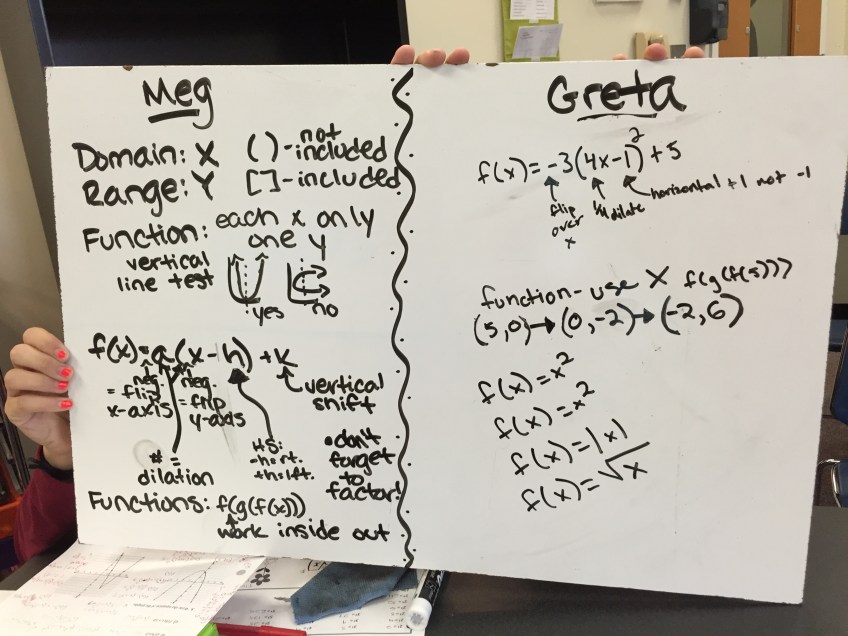 Meg
Domain: X ( ) - not included
Range: Y [ ] - included
Function: each x only one y
vertical
line test
yes
no
f(x) = a(x-h) + k
neg.
= flip
x-axis
neg.
= flip
y-axis
vertical
shift
# =
dilation
HS:
-h=rt.
+h=lft.
• don't
forget
to
factor!
Functions: f(g(f(x)))
work inside out
Greta
f(x) = -3(4x-1)² + 5
flip
over
x
1/4 dilate
horizontal +1 not -1
function - use X f(g(f(5)))
(5,0)→(0,-2)→(-2,6)
f(x)=x²
f(x)=x²
f(x)=|x|
f(x)=√x